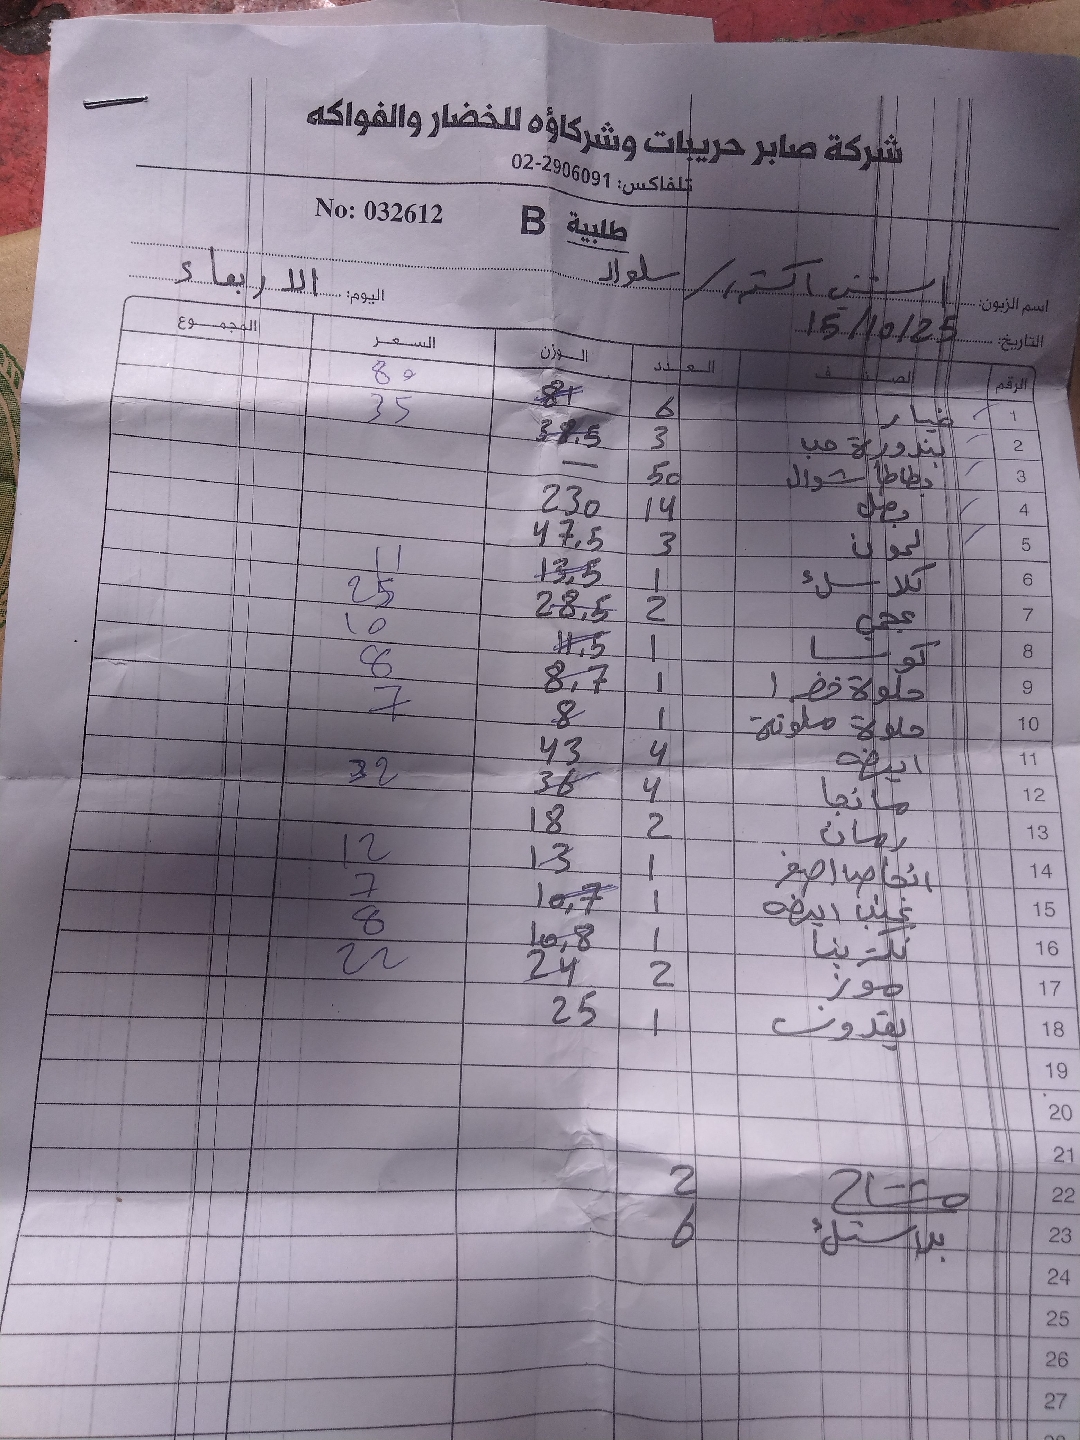 شركة صابر حريبات وشركاؤه للخضار والفواكه
تلفاكس: 02-2906091
طلبية B No: 032612
اسم الزبون: / سلواد
التاريخ: 15/10/25 اليوم: الاربعاء
الرقم الصنف العدد الوزن السعر المجموع
1 خيار 6 81 80
2 بندورة حب 3 38.5 35
3 بطاطا شوال 50 —
4 بصل 14 230
5 ليمون 3 47.5
6 كلاسك 1 13.5 11
7 عجمي 2 28.5 25
8 كوسا 1 11.5 10
9 حلوة خضرا 1 8.7 8
10 حلوة ملونة 1 8 7
11 ابيض 4 43
12 مانجا 4 36 32
13 رمان 2 18
14 انجاص اصفر 1 13 12
15 عنب ابيض 1 10.7 7
16 نكترينا 1 10.8 8
17 موز 2 24 22
18 بقدونس 1 25
19
20
21
22 مشتاح 2
23 بلاستك 6
24
25
26
27
28